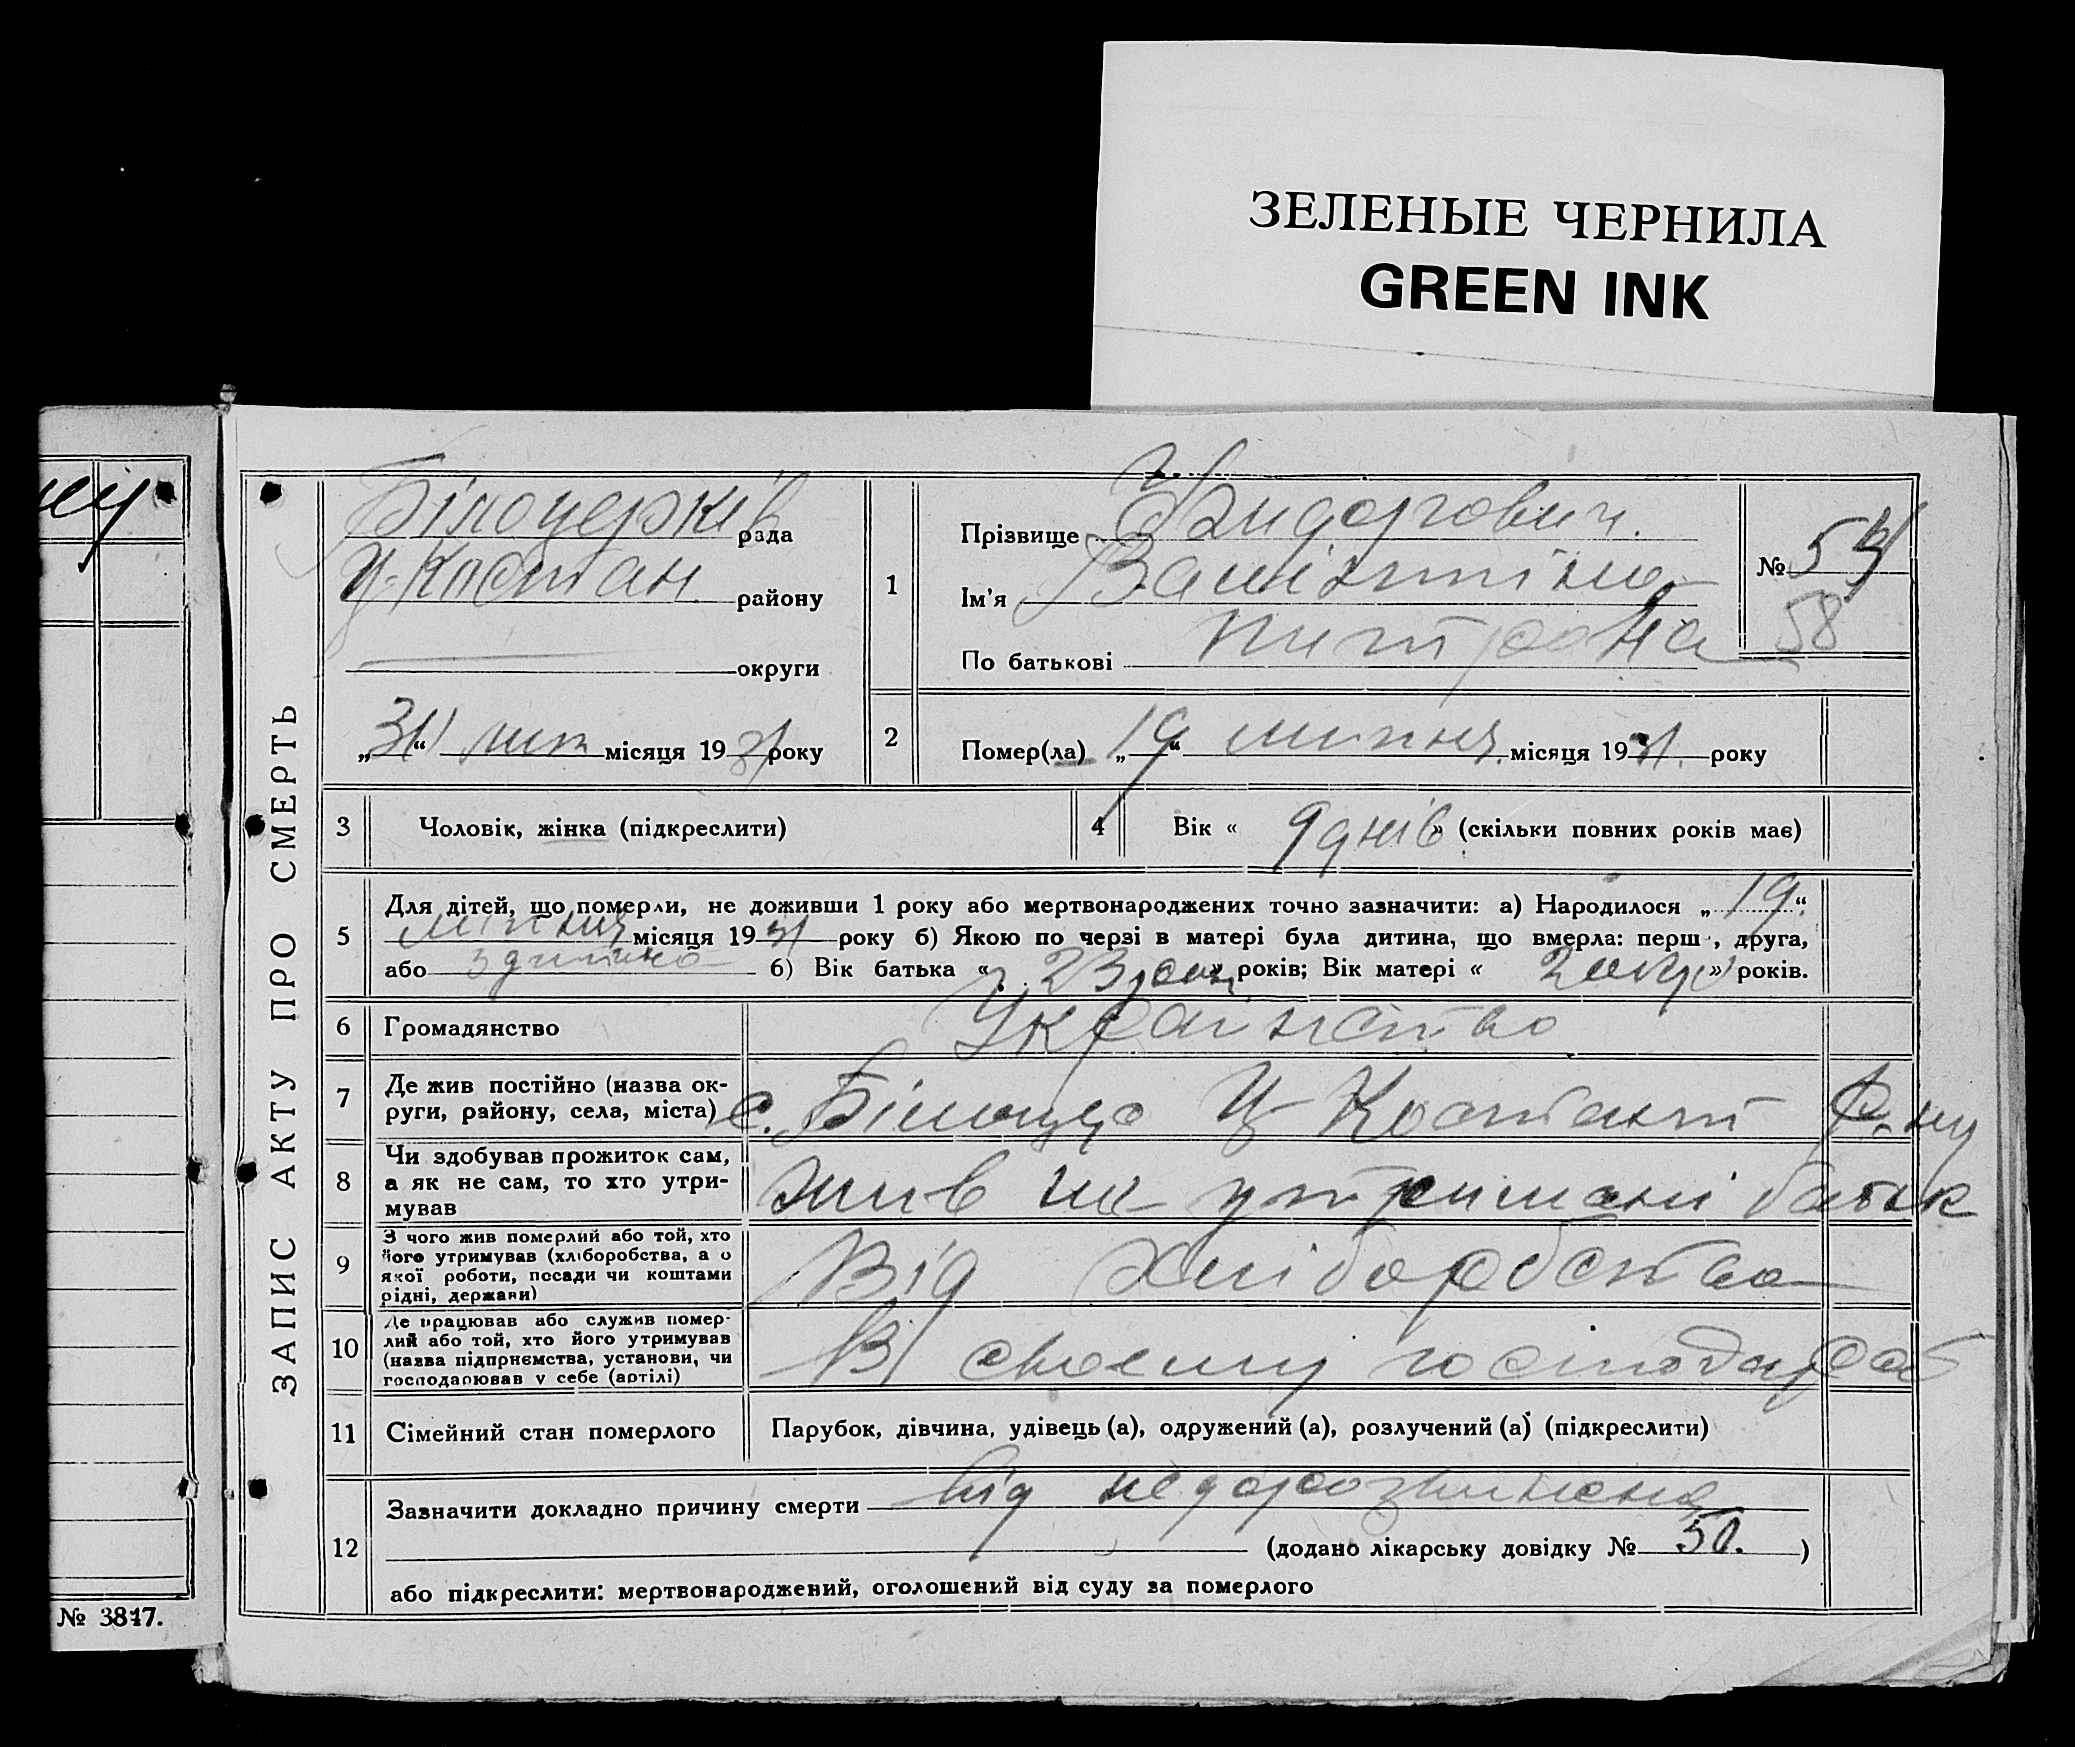 ЗЕЛЕНЫЕ ЧЕРНИЛА
GREEN INK
ЗАПИС АКТУ ПРО СМЕРТЬ
Білоцерків рада
У-Костян району
округи
„31“ лип місяця 1931 року
1
Прізвище
Ім'я Валінтіна
По батькові питровна
№ 54
58
2
Помер(ла) „19“ липня місяця 1931. року
3 Чоловік, жінка (підкреслити)
4 Вік « 9 днів » (скільки повних років має)
5 Для дітей, що померли, не доживши 1 року або мертвонароджених точно зазначити: а) Народилося „19“
липня місяця 1931 року б) Якою по черзі в матері була дитина, що вмерла: перш, друга,
або 3 дитина б) Вік батька « 23 рок » років; Вік матері « » років.
6 Громадянство Українство
7 Де жив постійно (назва ок-
руги, району, села, міста) с. Костянт р-ну
8 Чи здобував прожиток сам,
а як не сам, то хто утри-
мував
жив на утримані батьк
9 З чого жив померлий або той, хто
його утримував (хліборобства, а о
якої роботи, посади чи коштами
рідні, держави)
Від хліборобства
10 Де працював або служив помер-
лий або той, хто його утримував
(назва підприємства, установи, чи
господарював у себе (артілі)
В своєму господар
11 Сімейний стан померлого Парубок, дівчина, удівець (а), одружений (а), розлучений (а) (підкреслити)
12 Зазначити докладно причину смерти від недорозвинення
(додано лікарську довідку № 50. )
або підкреслити: мертвонароджений, оголошений від суду за померлого
№ 3847.